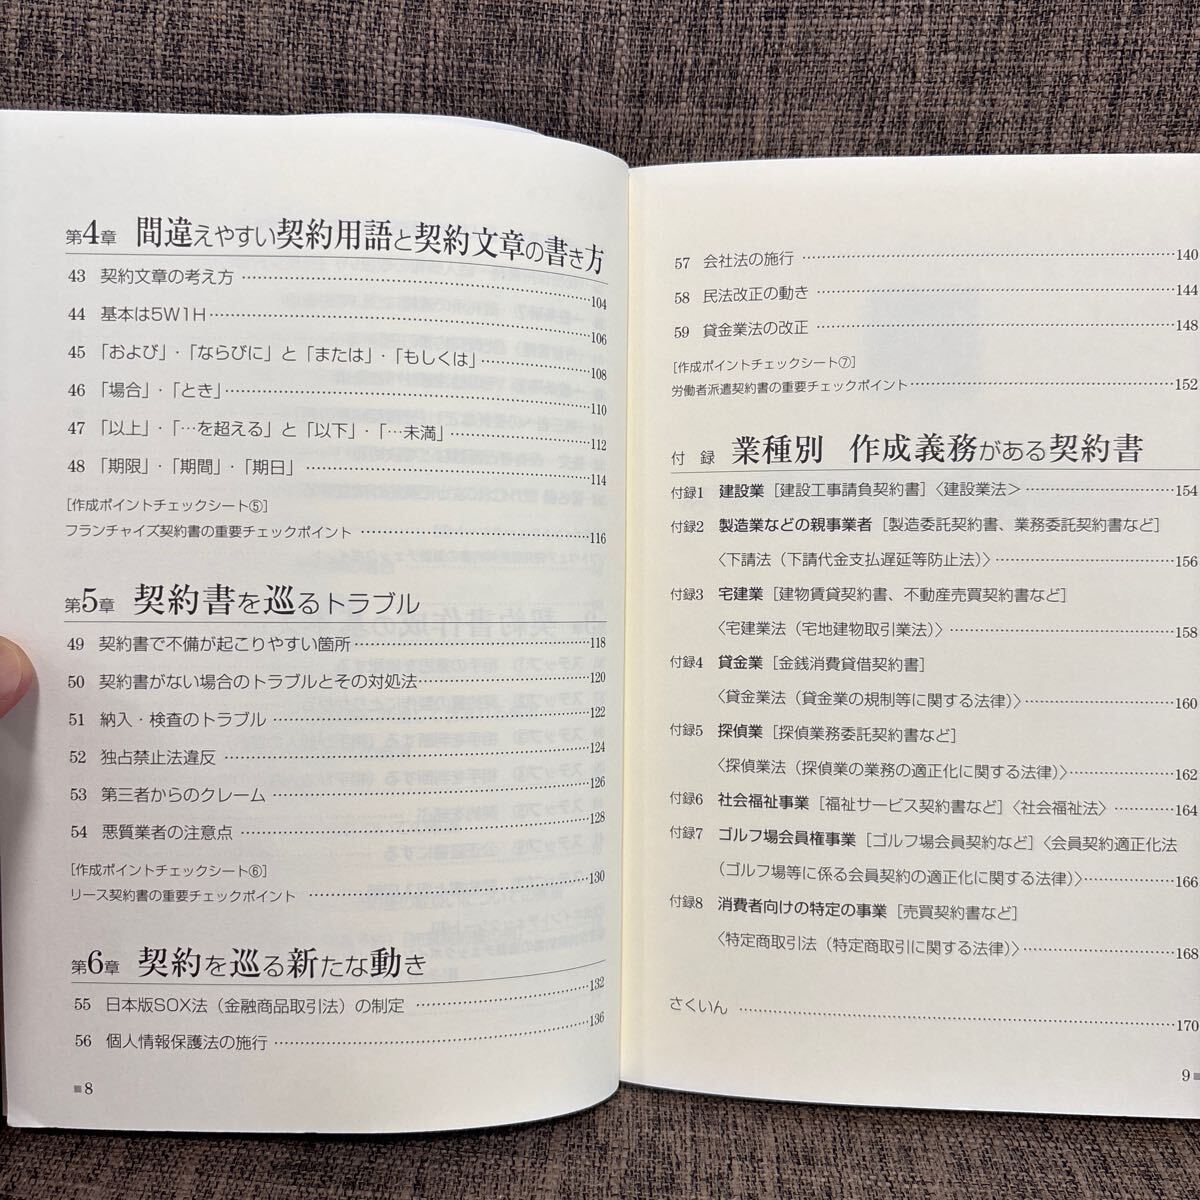 第4章 間違えやすい契約用語と契約文章の書き方
43 契約文章の考え方 …… 104
44 基本は5W1H …… 106
45 「および」・「ならびに」と「または」・「もしくは」 …… 108
46 「場合」・「とき」 …… 110
47 「以上」・「…を超える」と「以下」・「…未満」 …… 112
48 「期限」・「期間」・「期日」 …… 114
[作成ポイントチェックシート⑤]
フランチャイズ契約書の重要チェックポイント …… 116
第5章 契約書を巡るトラブル
49 契約書で不備が起こりやすい箇所 …… 118
50 契約書がない場合のトラブルとその対処法 …… 120
51 納入・検査のトラブル …… 122
52 独占禁止法違反 …… 124
53 第三者からのクレーム …… 126
54 悪質業者の注意点 …… 128
[作成ポイントチェックシート⑥]
リース契約書の重要チェックポイント …… 130
第6章 契約を巡る新たな動き
55 日本版SOX法（金融商品取引法）の制定 …… 132
56 個人情報保護法の施行 …… 136
8
57 会社法の施行 …… 140
58 民法改正の動き …… 144
59 貸金業法の改正 …… 148
[作成ポイントチェックシート⑦]
労働者派遣契約書の重要チェックポイント …… 152
付録 業種別 作成義務がある契約書
付録1 建設業［建設工事請負契約書］〈建設業法〉 …… 154
付録2 製造業などの親事業者［製造委託契約書、業務委託契約書など］
〈下請法（下請代金支払遅延等防止法）〉 …… 156
付録3 宅建業［建物賃貸契約書、不動産売買契約書など］
〈宅建業法（宅地建物取引業法）〉 …… 158
付録4 貸金業［金銭消費貸借契約書］
〈貸金業法（貸金業の規制等に関する法律）〉 …… 160
付録5 探偵業［探偵業務委託契約書など］
〈探偵業法（探偵業の業務の適正化に関する法律）〉 …… 162
付録6 社会福祉事業［福祉サービス契約書など］〈社会福祉法〉 …… 164
付録7 ゴルフ場会員権事業［ゴルフ場会員契約など］〈会員契約適正化法
（ゴルフ場等に係る会員契約の適正化に関する法律）〉 …… 166
付録8 消費者向けの特定の事業［売買契約書など］
〈特定商取引法（特定商取引に関する法律）〉 …… 168
さくいん …… 170
9